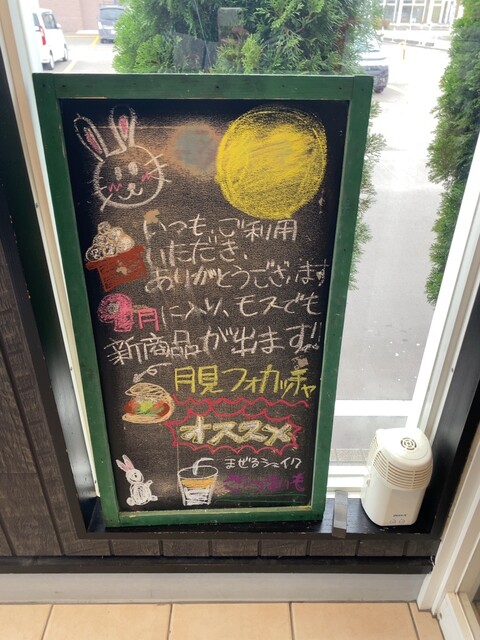 いつも、ご利用
いただき、
ありがとうございます
9月に入り、モスでも
新商品が出ます!!
月見フォカッチャ
オススメ
まぜるシェイク